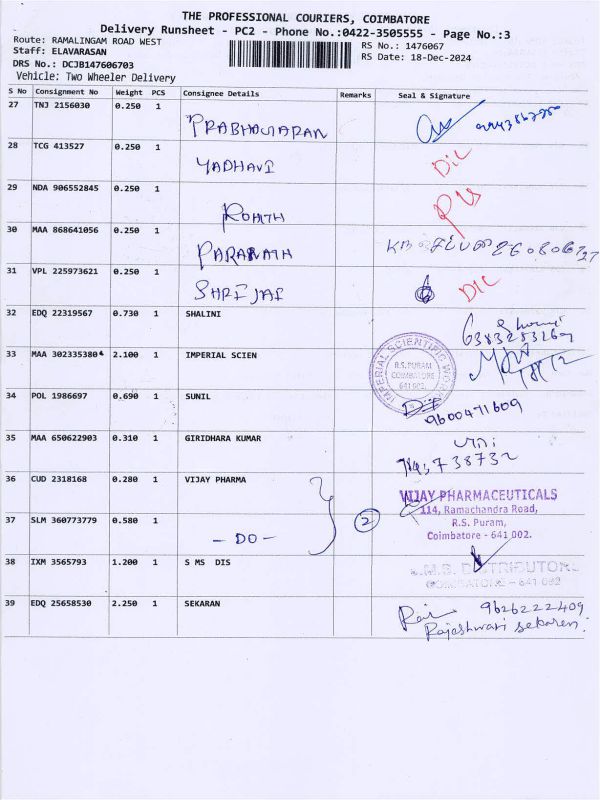 THE PROFESSIONAL COURIERS, COIMBATORE
Delivery Runsheet - PC2 - Phone No.:0422-3505555 - Page No.:3
Route: RAMALINGAM ROAD WEST
RS No.: 1476067
Staff: ELAVARASAN
RS Date: 18-Dec-2024
DRS No.: DCJB147606703
Vehicle: Two Wheeler Delivery
S No Consignment No Weight PCS Consignee Details Remarks Seal & Signature
27 TNJ 2156030 0.250 1 PRABHAKARAN
28 TCG 413527 0.250 1 YADHAVI DIC
29 NDA 906552845 0.250 1 ROHITH
30 MAA 868641056 0.250 1
31 VPL 225973621 0.250 1 SHREJAI DIC
32 EDQ 22319567 0.730 1 SHALINI
6383283269
33 MAA 302335380 2.100 1 IMPERIAL SCIEN
IMPERIAL SCIENTIFIC
R.S. PURAM
COIMBATORE
641 002.
18/12
34 POL 1986697 0.690 1 SUNIL
9600471609
35 MAA 650622903 0.310 1 GIRIDHARA KUMAR
36 CUD 2318168 0.280 1 VIJAY PHARMA
VIJAY PHARMACEUTICALS
114, Ramachandra Road,
R.S. Puram,
Coimbatore - 641 002.
2
37 SLM 360773779 0.580 1 - DO -
38 IXM 3565793 1.200 1 S MS DIS
S.M.S. DISTRIBUTORS
COIMBATORE - 641 002
39 EDQ 25658530 2.250 1 SEKARAN
9626222409
Rajeshwari Sekaren